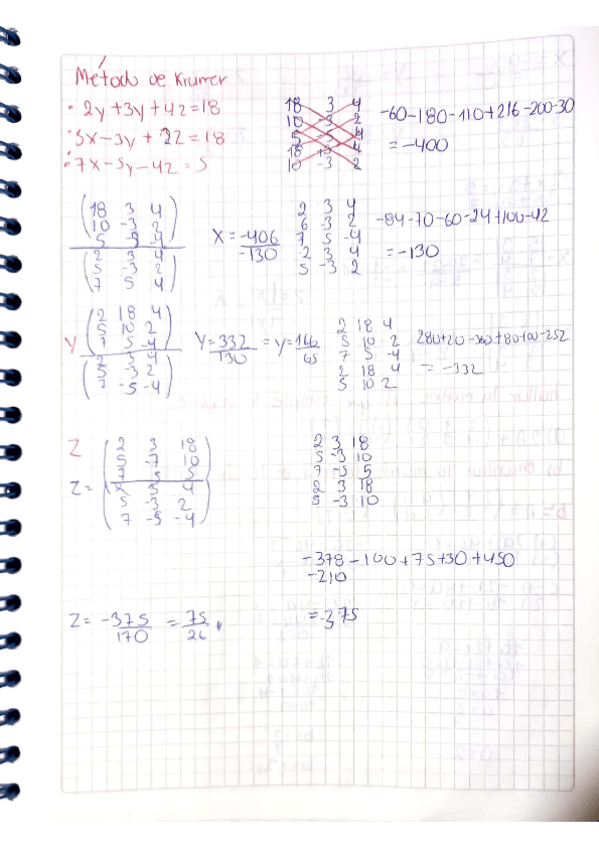 Método de Krumer
• 2y + 3y + 4z = 18
• 5x - 3y + 2z = 18
• 7x - 5y - 4z = 5
18 3 4
10 -3 2
5 -5 -4
18 +3 4
10 -3 2
-60-180-110+216-200-30
= -400
18 3 4
10 -3 2
5 5 4
2 3 4
5 -3 2
7 5 4
X = -406
-130
2 3 4
6 -3 2
7 5 -4
2 3 4
5 -3 2
-84-70-60-24+100-42
= -130
Y
2 18 4
5 10 2
7 5 -4
2 3 4
5 -3 2
7 -5 -4
Y = 332 = y = 166
130 65
2 18 4
5 10 2
7 5 -4
2 18 4
5 10 2
280+20-360+80+100-252
= -332
Z
Z =
2 3 18
5 -7 10
7 5 5
2 3 4
5 -3 2
7 -5 -4
2 3 18
5 -3 10
7 -5 5
2 3 18
5 -3 10
-378-100+75+30+450
-210
Z = -375 = 75
170 26
= -375